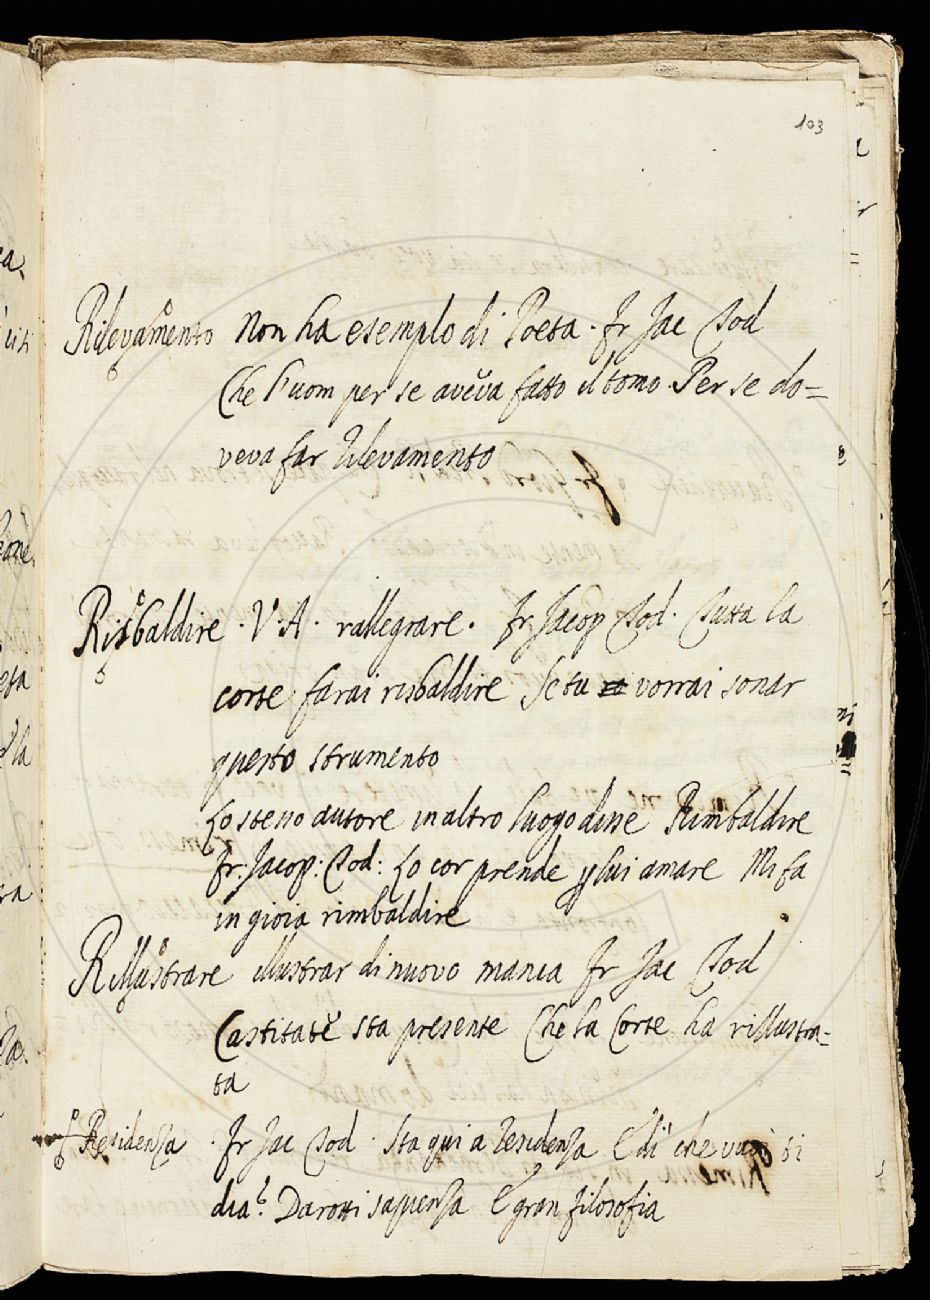 103
Rilevamento Non ha esemplo di Poeta. Fr Jac Tod
Che l'uom per se aveva fatto il tomo. Per se do=
veva far rilevamento
Risbaldire. V. A. rallegrare. Fr Jacop Tod. Tutta la
corte farai risbaldire Se tu vorrai sonar
questo strumento
Lo stesso autore in altro luogo disse Rimbaldire
Fr: Jacop: Tod: Lo cor prende p lui amare Mi fa
in gioia rimbaldire
Rillustrare illustrar di nuovo manca Fr Jac Tod
Castitate sta presente Che la Corte ha rillustra-
ta
Residenza. Fr Jac Tod. Sta qui a residenza E dì che vuoi ti
dia? Darotti sapienza E gran filosofia